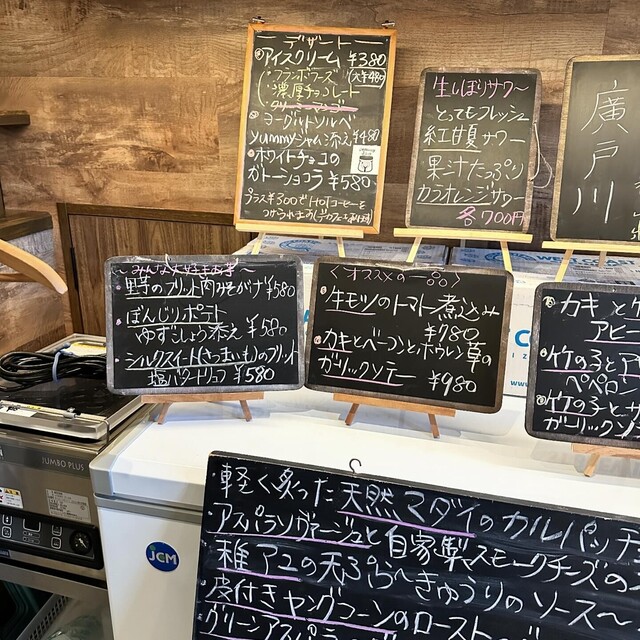 デザート
アイスクリーム ¥380
フランボワーズ (大¥480)
濃厚チョコレート
クリーミーマンゴー
ヨーグルトソルベ
yummyジャム添え ¥480
ホワイトチョコの
ガトーショコラ ¥580
プラス¥300でHOTコーヒーを
つけられます
生しぼりサワー
とってもフレッシュ
紅甘夏サワー
果汁たっぷり
カラオレンジサワー
各700円
廣戸川
～みんな大好き
のフリット肉みそがけ ¥580
ぼんじりポテト
ゆずこしょう添え ¥580
シルクスイート(さつまいも)のフリット
塩バタートリュフ ¥580
<オススメの一品>
生モツのトマト煮込み
¥780
カキとベーコンとホウレン草の
ガーリックソテー ¥980
カキと
アヒー
竹の子とア
ペペロン
竹の子と
ガーリックソ
軽く炙った天然マダイのカルパッチ
アスパラソヴァージュと自家製スモークチーズの
稚アユの天ぷら～きゅうりのソース～
皮付きヤングコーンのロースト
グリーンアスパラ
JUMBO PLUS
JCM